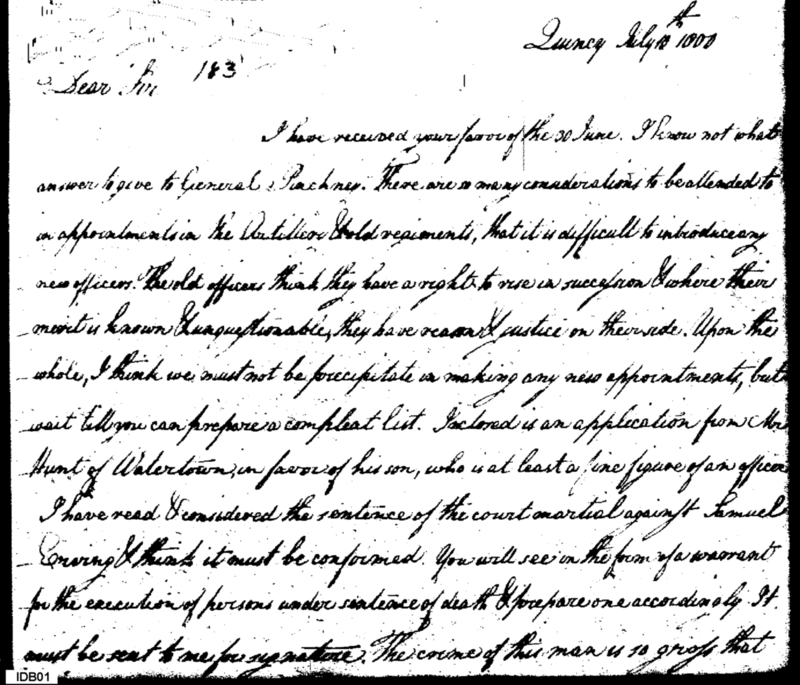 Quincy July 18th 1800
183
Dear Sir
I have received your favor of the 30 June. I know not what
answer to give to General Pinckney. There are so many considerations to be attended to
in appointments in the Artillery & old regiments, that it is difficult to introduce any
new officers. The old officers think they have a right to rise in succession & where their
merit is known & unquestionable, they have reason & justice on their side. Upon the
whole, I think we must not be precipitate in making any new appointments, but
wait till you can prepare a compleat list. Inclosed is an application from Mr
Hunt of Watertown, in favor of his son, who is at least a fine figure of an officer
I have read & considered the sentence of the court martial against Samuel
& think it must be confirmed. You will see in the form of a warrant
for the execution of persons under sentence of death & prepare one accordingly. It
must be sent to me for signature. The crime of this man is so gross that
IDB01